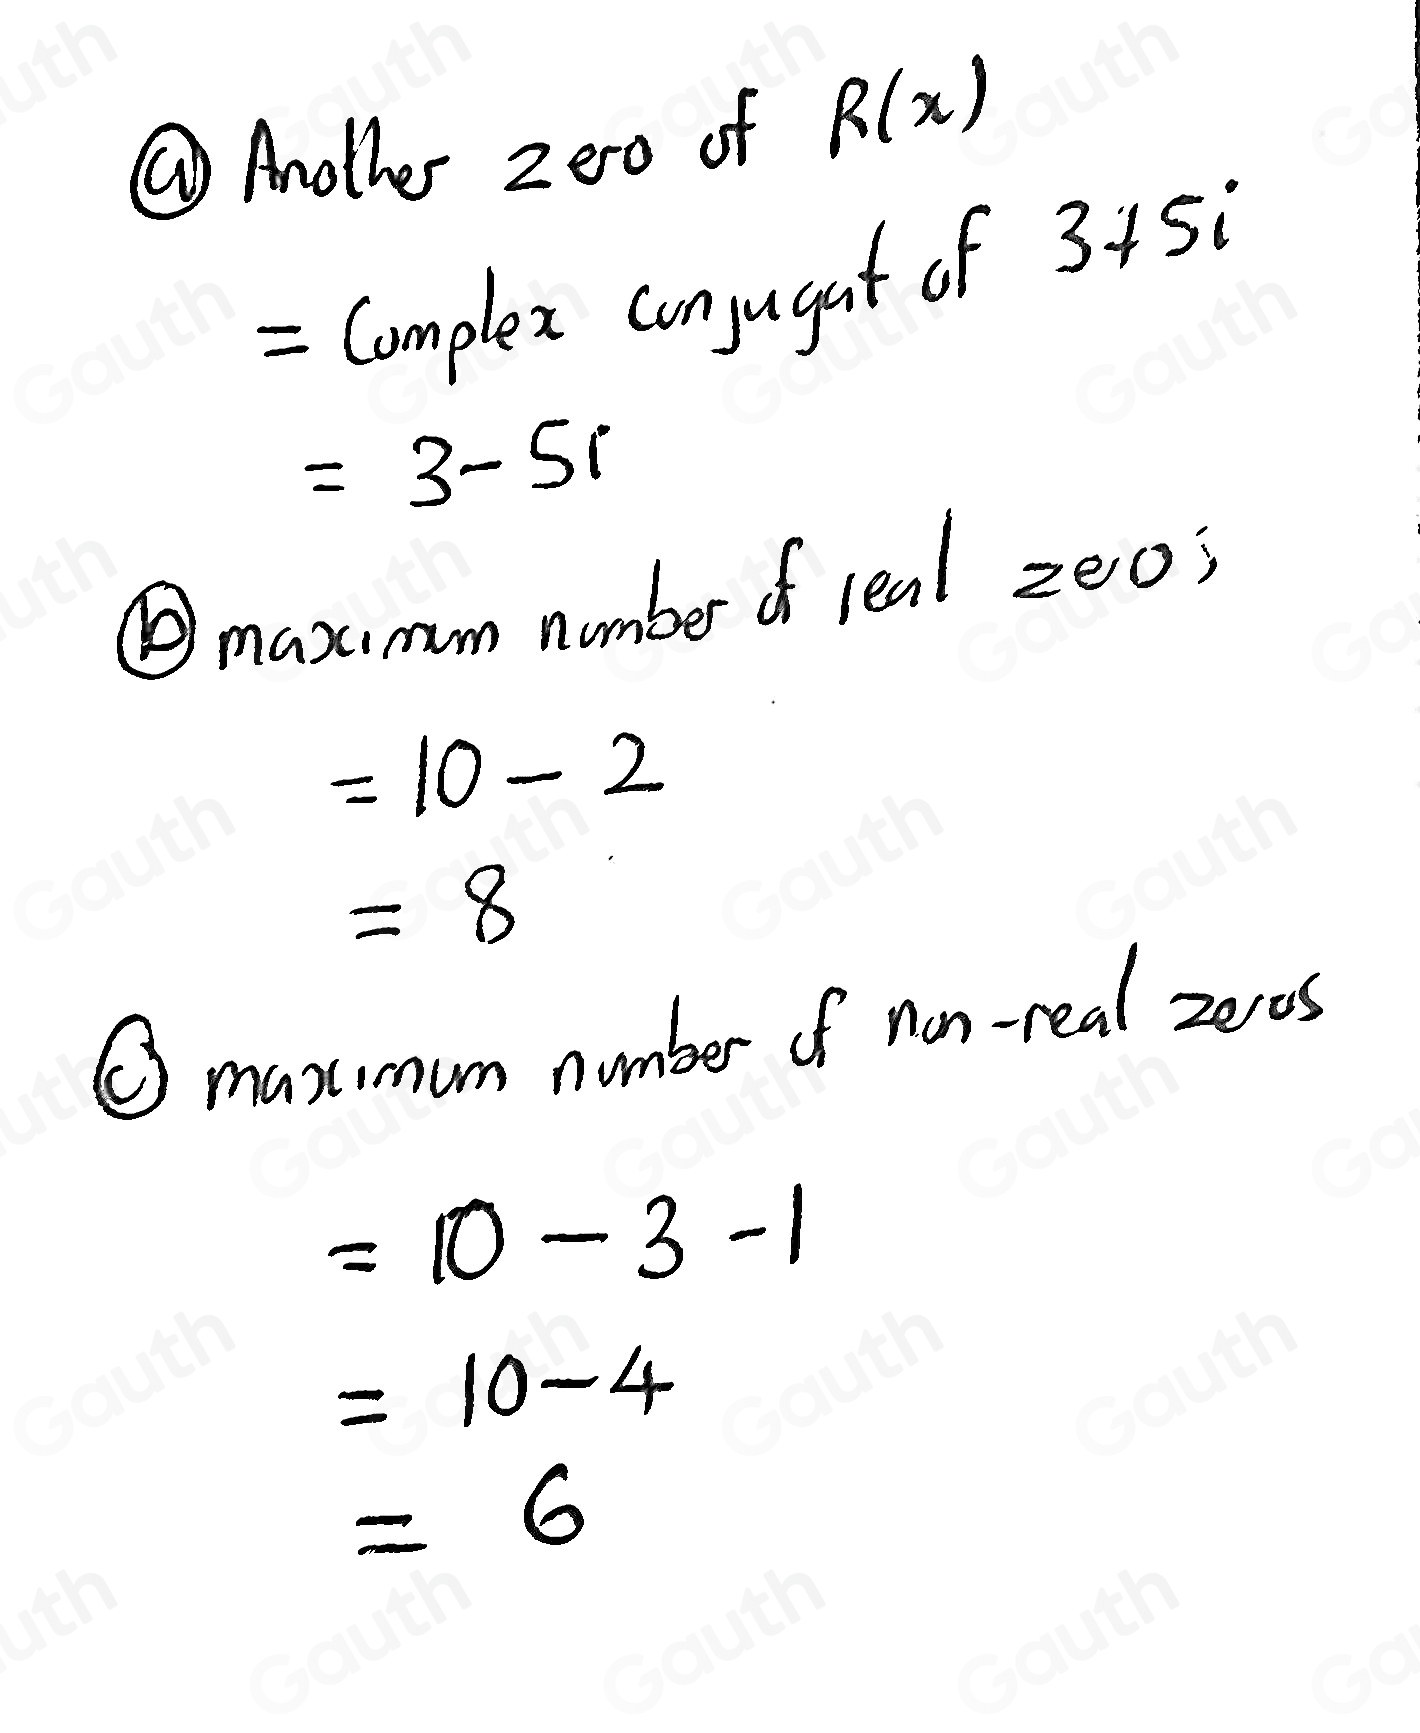 (a) Another zero of R(x)
= Complex conjugat of 3+5i
= 3-5i
(b) maximum number of real zeros
= 10 - 2
= 8
(c) maximum number of non-real zeros
= 10 - 3 - 1
= 10 - 4
= 6